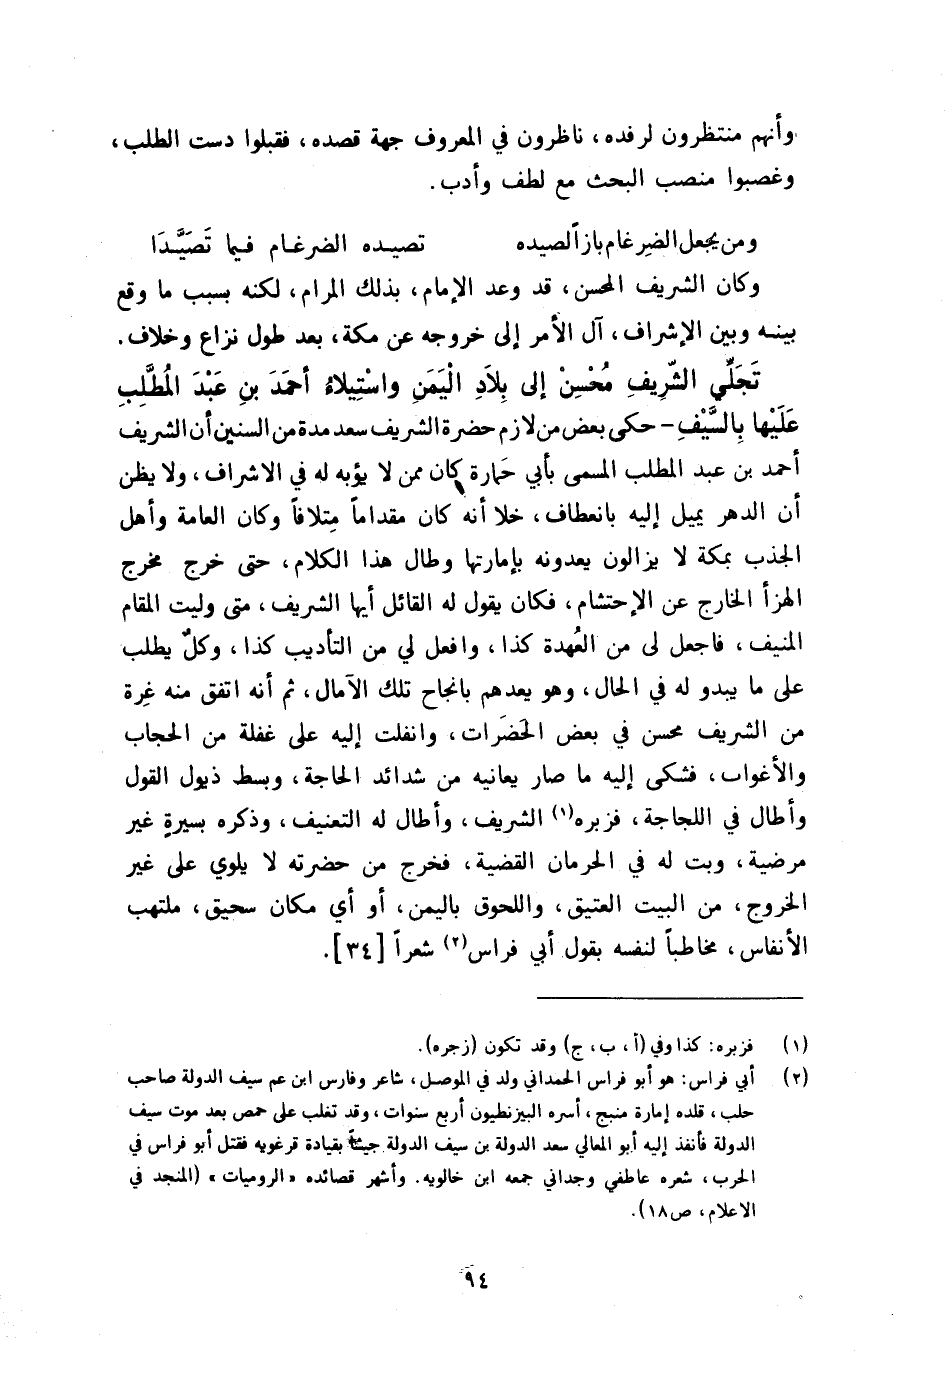 وأنهم منتظرون لرفده، ناظرون في المعروف جهة قصده، فقبلوا دست الطلب،
وغصبوا منصب البحث مع لطف وأدب.
ومن يجعل الضِرغام بازاً لصيده تصيده الضرغام فيما تَصَيَّدَا
وكان الشريف المحسن، قد وعد الإمام، بذلك المرام، لكنه بسبب ما وقع
بينه وبين الإشراف، آل الأمر إلى خروجه عن مكة، بعد طول نزاع وخلاف.
تَجَلِّي الشَّرِيفِ مُحْسِنْ إلى بِلَادِ الْيَمَنِ واسْتِيلاءُ أحمَدَ بنِ عَبْدَ المُطَّلِبِ
عَلَيْها بِالسَّيْفِ - حكى بعض من لازم حضرة الشريف سعد مدة من السنين أن الشريف
أحمد بن عبد المطلب المسمى بأبي حَمارة كان ممن لا يؤبه له في الاشراف، ولا يظن
أن الدهر يميل إليه بانعطاف، خلا أنه كان مقداماً مِتلافاً وكان العامة وأهل
الجذب بمكة لا يزالون يعدونه بإمارتها وطال هذا الكلام، حتى خرج مخرج
الهزأ الخارج عن الإحتشام، فكان يقول له القائل أيها الشريف، متى وليت المقام
المنيف، فاجعل لى من العُهدة كذا، وافعل لي من التأديب كذا، وكلٌ يطلب
على ما يبدو له في الحال، وهو يعدهم بانجاح تلك الآمال، ثم أنه اتفق منه غِرة
من الشريف محسن في بعض الحَضَرات، وانفلت إليه على غفلة من الحجاب
والأغواب، فشكى إليه ما صار يعانيه من شدائد الحاجة، وبسط ذيول القول
وأطال في اللجاجة، فزبره(١) الشريف، وأطال له التعنيف، وذكره بسيرةٍ غير
مرضية، وبت له في الحرمان القضية، فخرج من حضرته لا يلوي على غير
الخروج، من البيت العتيق، واللحوق باليمن، أو أي مكان سحيق، ملتهب
الأنفاس، مخاطباً لنفسه بقول أبي فراس(٢) شعراً [٣٤].
(١) فزبره: كذا وفي (أ، ب، ج) وقد تكون (زجره).
(٢) أبي فراس: هو أبو فراس الحمداني ولد في الموصل، شاعر وفارس ابن عم سيف الدولة صاحب
حلب، قلده إمارة منبج، أسره البيزنطيون أربع سنوات، وقد تغلب على حمص بعد موت سيف
الدولة فأنفذ إليه أبو المعالي سعد الدولة بن سيف الدولة جيشاً بقيادة قرغويه فقتل أبو فراس في
الحرب، شعره عاطفي وجداني جمعه ابن خالويه. وأشهر قصائده «الروميات» (المنجد في
الاعلام، ص١٨).
٩٤